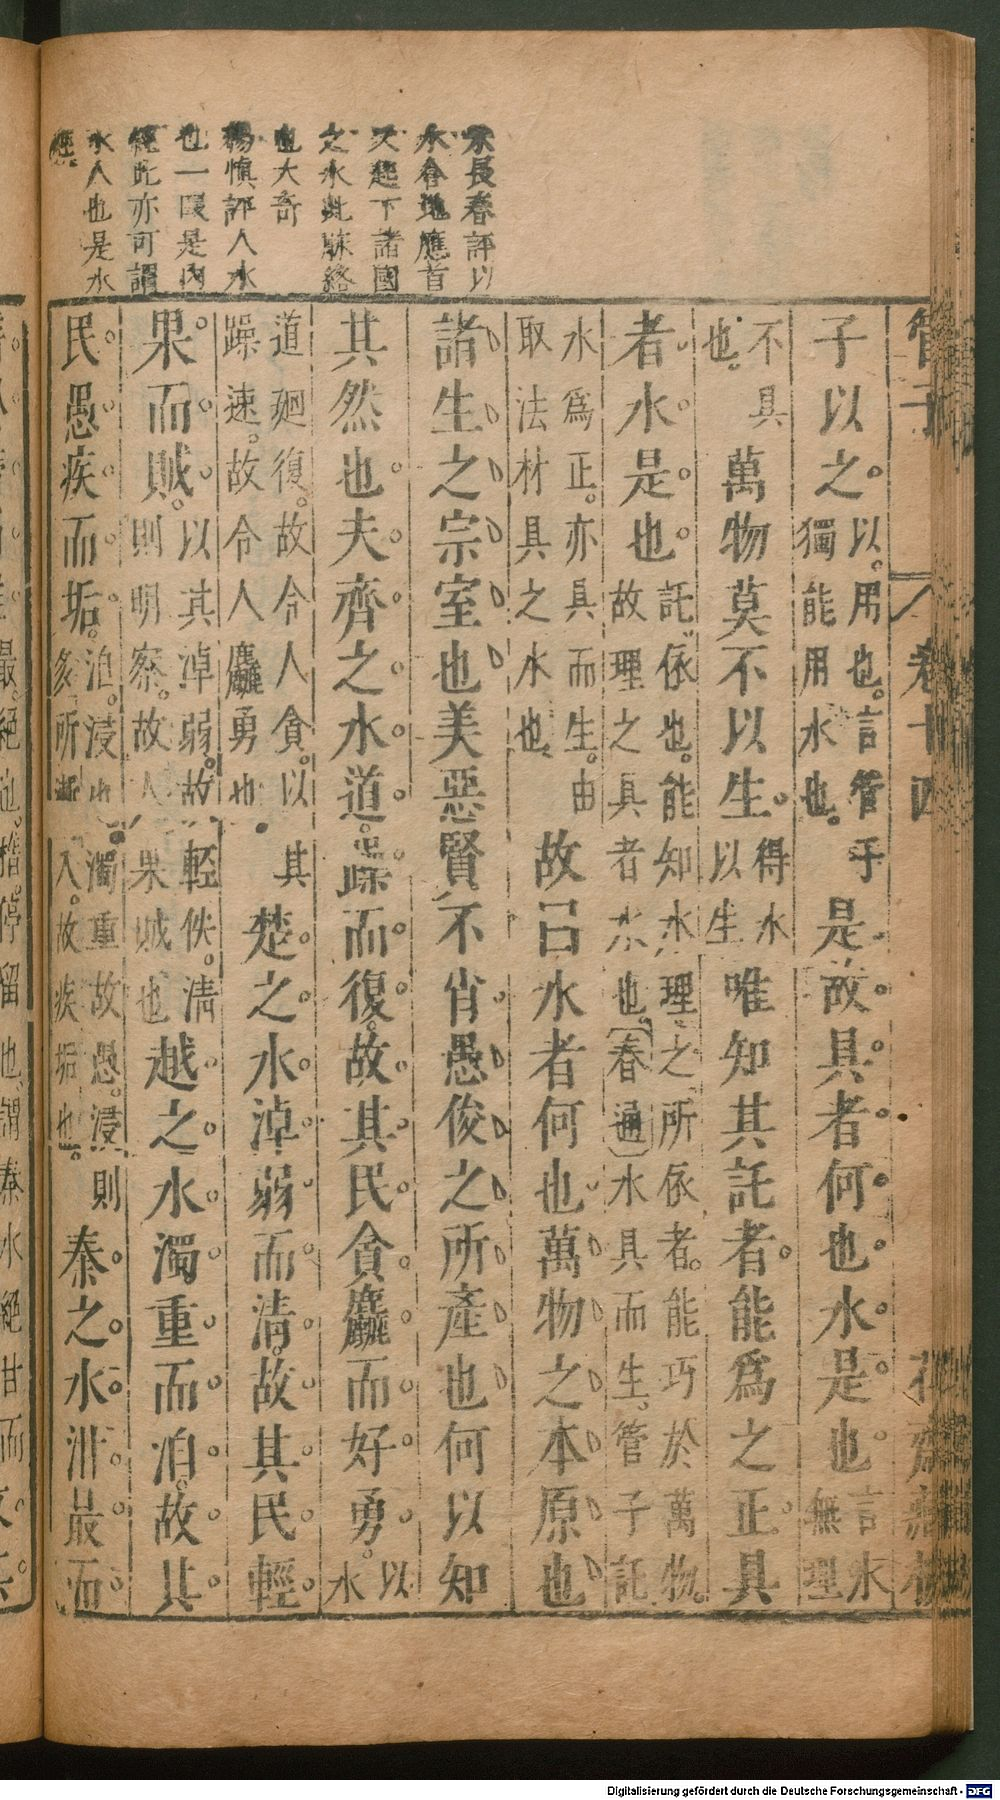 朱長春評以
水合地應首
又起下諸國
之水此脉絡
也大奇
楊慎評人水
也一叚是內
經此亦可謂
水人也是水
經
管子 卷十四
子以之以用也言管子獨能用水也是故具者何也水是也言水無理
不具也萬物莫不以生得水以生唯知其託者能爲之正具
者水是也託依也能知水理之所依者能巧於萬物故理之具者水也春通水具而生管子託
水爲正亦具而生由取法材具之水也故曰水者何也萬物之本原也
諸生之宗室也美惡賢不肖愚俊之所產也何以知
其然也夫齊之水道躁而復故其民貪麤而好勇以水
道廻復故令人貪以其躁速故令人麤勇也楚之水淖弱而清故其民輕
果而賊以其淖弱故輕佚清則明察故人果賊也越之水濁重而洎故其
民愚疾而垢洎浸也濁重故愚浸則多所漸入故疾垢也秦之水泔最而
Digitalisierung gefördert durch die Deutsche Forschungsgemeinschaft - DFG